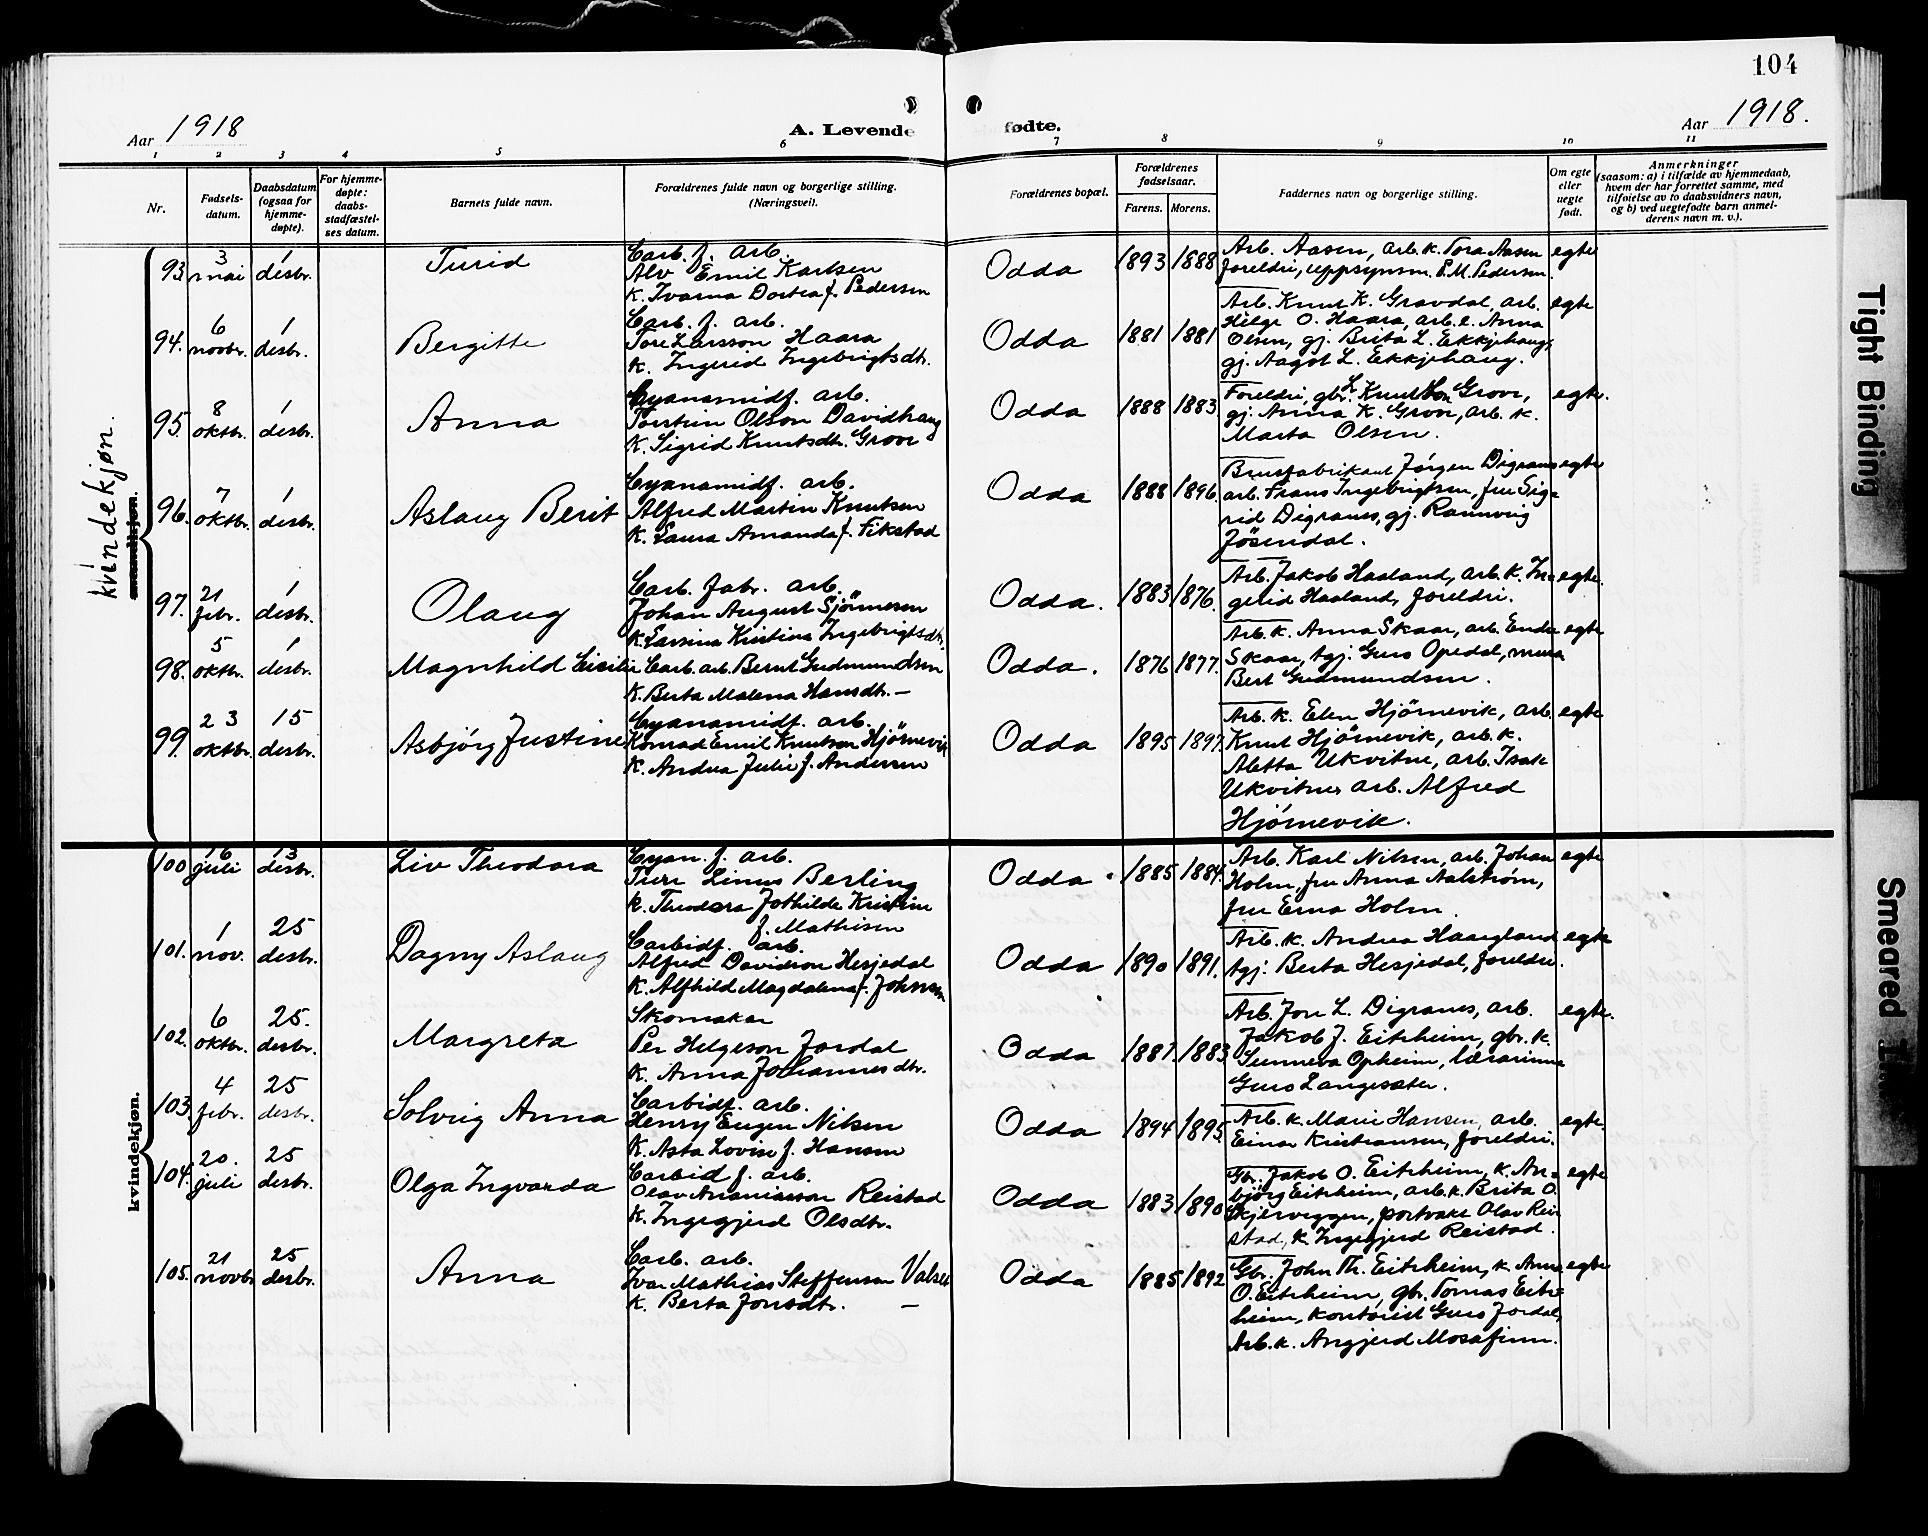 104
Aar 1918
A. Levende fødte.
Aar 1918.
1 2 3 4 5 6 7 8 9 10 11
Nr.
Fødsels-
datum.
Daabsdatum
(ogsaa for
hjemme-
døpte).
For hjemme-
døpte:
daabs-
stadfæstel-
ses datum.
Barnets fulde navn.
Forældrenes fulde navn og borgerlige stilling.
(Næringsvei).
Forældrenes bopæl.
Forældrenes
fødselsaar.
Farens. Morens.
Faddernes navn og borgerlige stilling.
Om egte
eller
uegte
født.
Anmerkninger
(saasom: a) i tilfælde av hjemmedaab,
hvem der har forrettet samme, med
tilføielse av to daabsvidners navn,
og b) ved uegtefødte barn anmel-
derens navn m. v.).
kvindekjøn.
mandkjøn.
93 3 mai 1 desbr. Turid
Carb. f. arb.
Alv Emil Karlsen
k. Ivarna Dortea f. Pedersen
Odda 1893 1888
Arb. Aasen, arb. k. Tora Aasen
foreldri, uppsynsm. P.M. Pedersen.
egte
94. 6 novbr. 1 desbr. Bergitte
Carb. f. arb.
Tore Larsson Haara
k. Ingerid Ingebrigtsdtr.
Odda 1881 1881
Arb. Knut K. Gravdal, arb.
Helge O. Haara, arb. e. Anna
Olsen, gj. Brita L. Ekkjehaug,
gj. Aagot L. Ekkjehaug.
egte
95. 8 oktbr. 1 desbr. Anna
Cyanamidf. arb.
Torstein Olson Davidhaug
k. Sigrid Knutsdtr. Grovr
Odda 1888 1883
Foreldri, gbr. L. Knutson Grovr,
gj. Anna K. Grovr, arb. k.
Marta Olsen.
egte.
96. 7 oktbr. 1 desbr. Aslaug Berit
Cyanamidf. arb.
Alfred Martin Knutsen
k. Laura Amanda f. Fikstad
Odda 1888 1896
Brusfabrikant Jørgen Digranes
arb. Frans Ingebrigtsen, fru Sig-
rid Digranes, gj. Rannveig
Jösendal.
egte
97. 21 febr. 1 desbr. Olaug
Carb. fabr. arb.
Johan August Sjönnesen
k. Larsina Kristina Ingebrigtsdtr.
Odda. 1883 1876.
Arb. Jakob Haaland, arb. k. In-
gerid Haaland, foreldri.
egte.
98. 5 oktbr. 1 desbr. Magnhild Cicilie
Carb. arb. Bernt Gudmundsen
k. Berta Malena Hansdtr. —
Odda. 1876 1877.
Arb. k. Anna Skaar, arb. Endre
Skaar, tgj. Guro Opedal,
Bert Gudmundsen.
egte
99. 23 oktbr. 15 desbr. Asbjörg Justine
Cyanamidf. arb.
Konrad Emil Knutson Hjörnevik
k. Andrea Julie f. Andersen
Odda 1895 1897.
Arb. k. Elen Hjörnevik, arb.
Knut Hjörnevik, arb. k.
Aletta Ukvitne, arb. Isak
Ukvitnes arb. Alfred
Hjörnevik.
egte
kvindekjøn.
100 16 juli 13 desbr. Liv Theodora
Cyan. f. arb.
Ture Linus Berling
k. Theodora Jothilde Kristine
f. Mathisen
Odda. 1885 1884.
Arb. Karl Nilsen, arb. Johan
Holm, fru Anna Aalstrøm,
fru Erna Holm.
egte
101. 1 nov. 25 desbr. Dagny Aslaug
Carbidf. arb.
Alfred Davidson Hesjedal
k. Alfhild Magdalena f. Johnsen
Odda 1890 1891.
Arb. k. Andrea Haargland
tgj. Berta Hesjedal, foreldri.
egte
102. 6 oktbr. 25. desbr. Margreta
Skomakar
Per Helgeson Jordal
k. Anna Johannesdtr.
Odda 1887. 1883
Arb. Jon L. Digranes, arb.
Jakob J. Eitrheim, gbr. k.
Sunneva Opheim, lærarinna
Guro Langesæter.
egte.
103. 4 febr. 25 desbr. Solveig Anna
Carbidf. arb.
Henry Eugen Nilsen
k. Asta Lovise f. Hansen
Odda 1894 1895
Arb. k. Marie Hansen, arb.
Einar Kristiansen, foreldri.
egte.
104. 20. juli 25 desbr. Olga Ingvarda
Carbid f. arb.
Olav Ananiasson Reistad
k. Ingegjerd Olsdtr.
Odda 1883 1890
Gbr. Jakob O. Eitrheim, k. An-
björg Eitrheim, arb. k. Brita O.
Skjerveggen, portvakt Olav Rei-
stad, k. Ingegjerd Reistad.
egte
105. 21 novbr. 25 desbr. Anna
Carb. arb.
Ivar Mathias Steffenson Valset
k. Berta Jonsdtr. —
Odda 1885 1892
Gbr. John Th. Eitrheim, k. Anna
O. Eitrheim, gbr. Tomas Eitr-
heim, kontorist Guro Jordal,
Arb. k. Angjerd Mosafinn.
egte
Tight Binding
Smeared